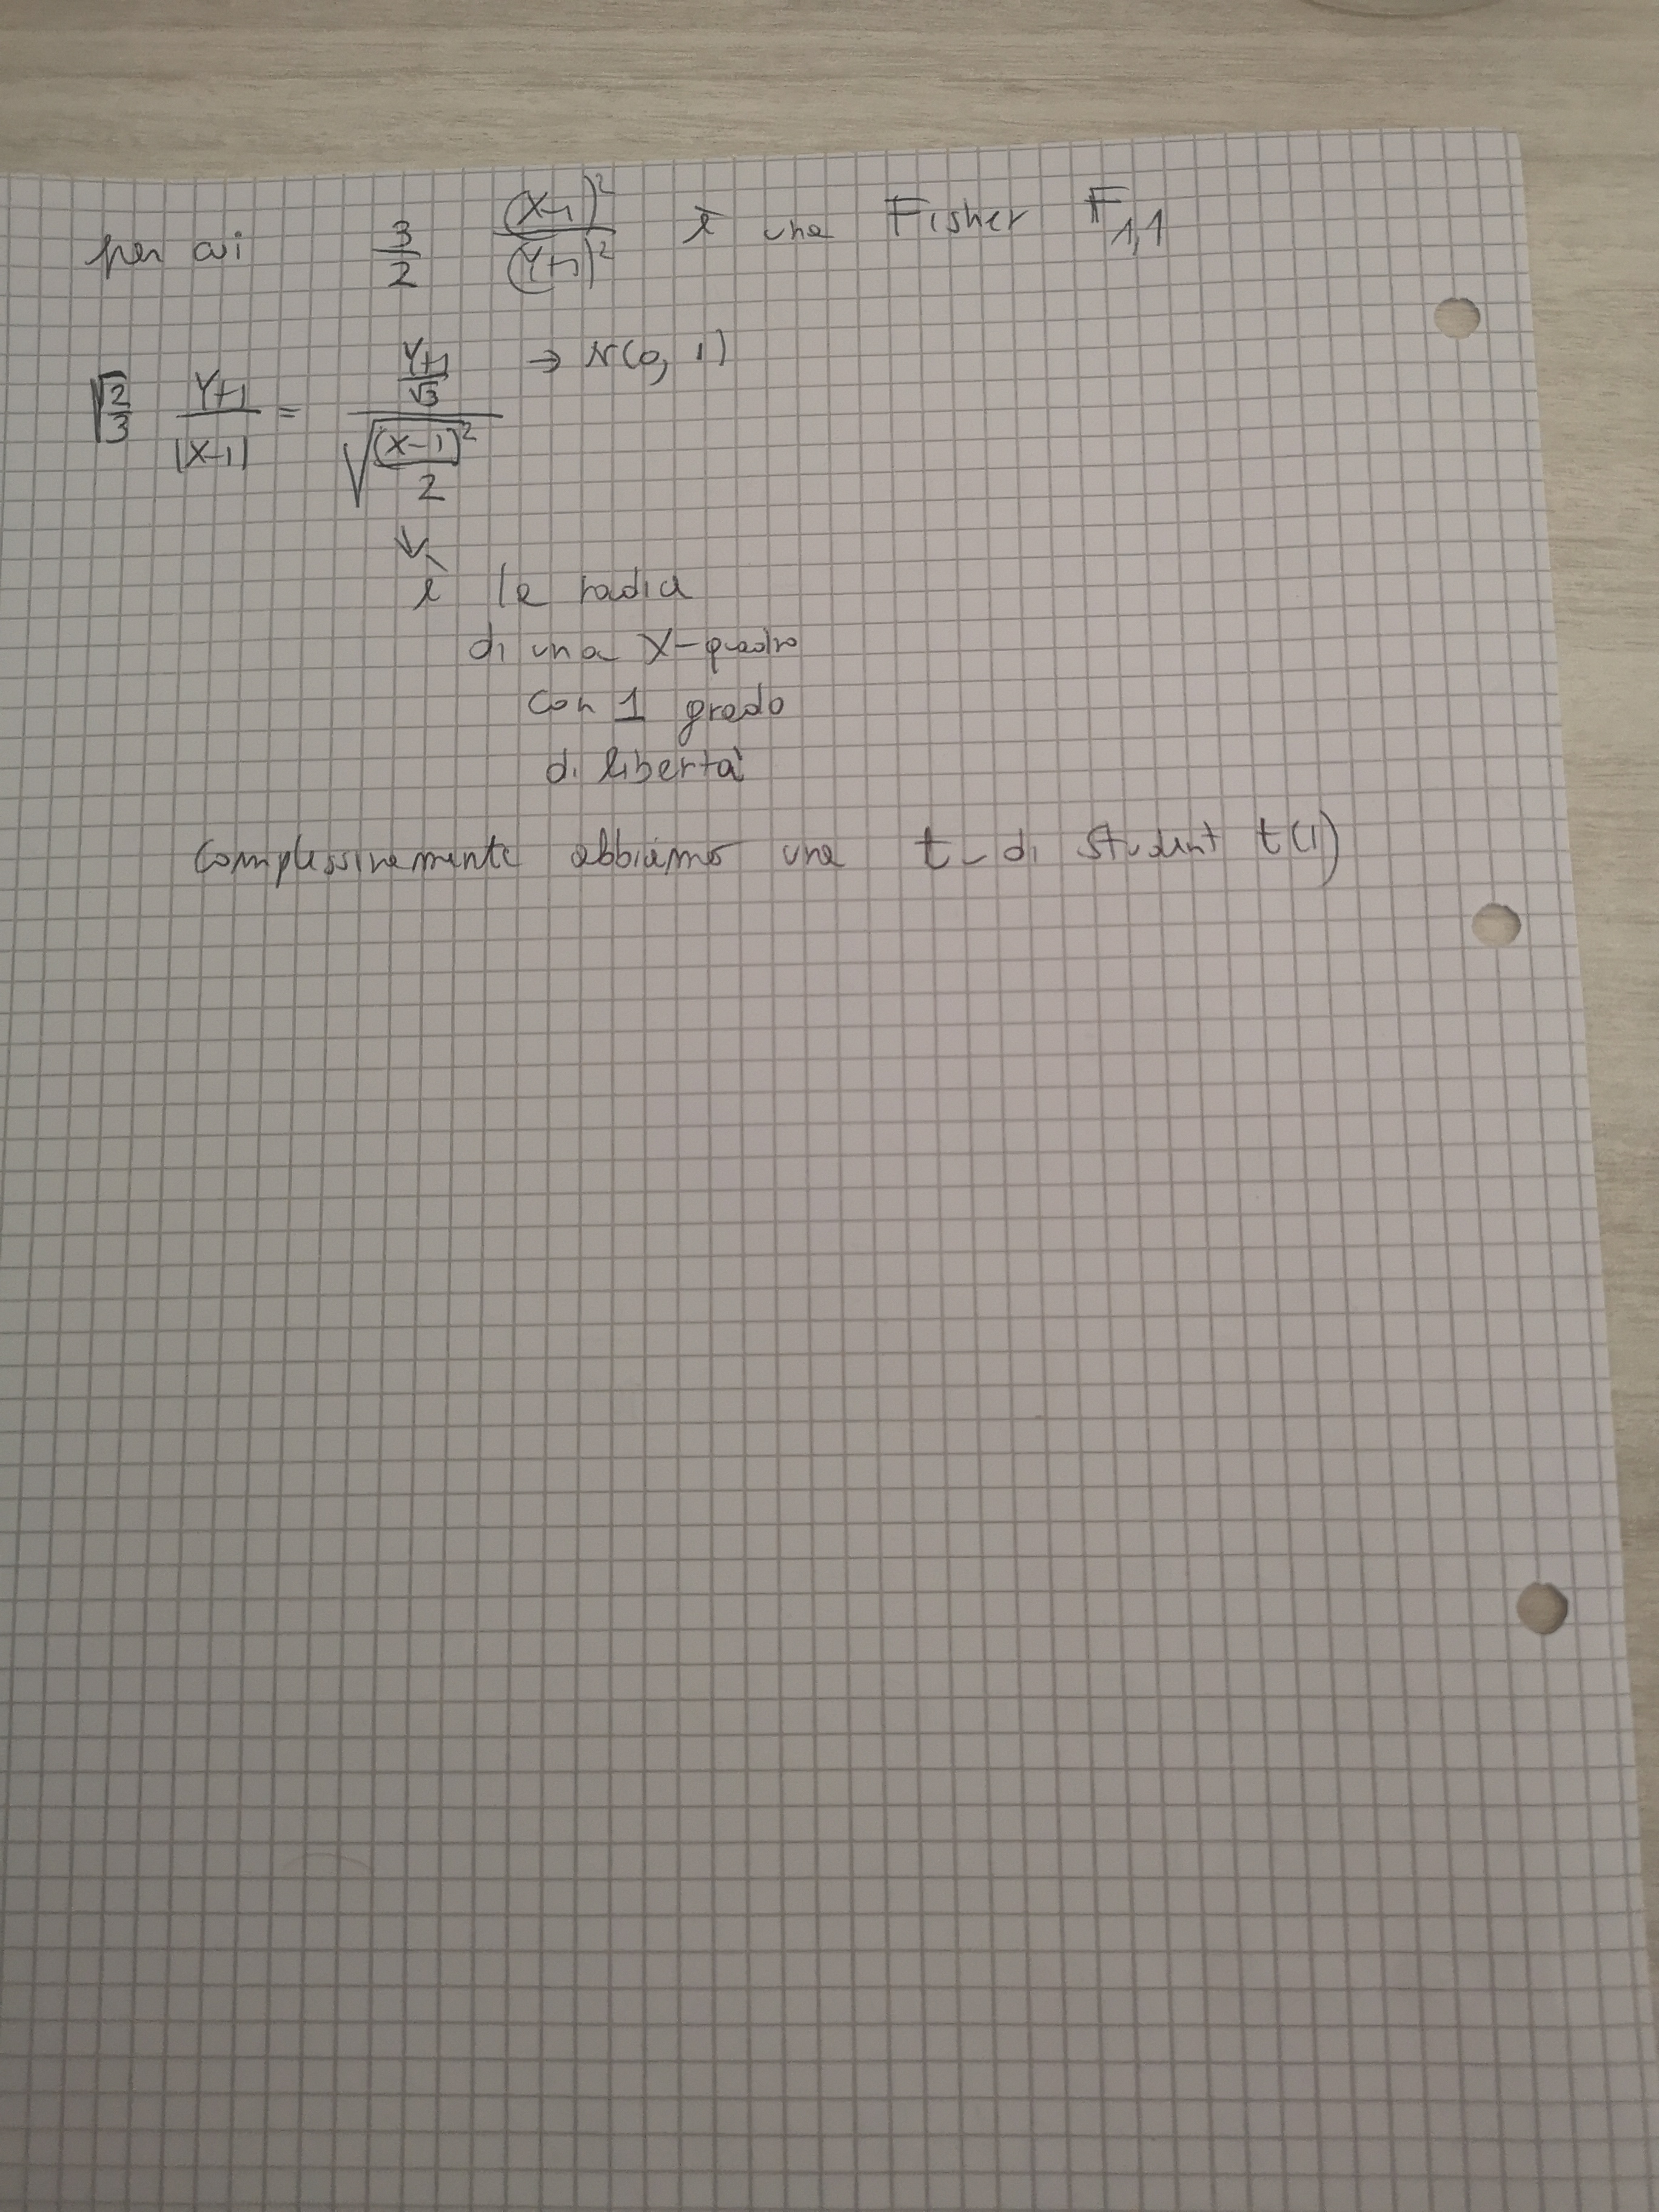 per cui 3/2 (X-1)²/(Y+1)² è una Fisher F₁,₁
√(2/3) (Y+1)/|X-1| = ((Y+1)/√3)/√((X-1)²/2) → N(0, 1)
↓
è la radice
di una X-quadro
con 1 grado
di libertà
Complessivamente abbiamo una t-di Student t(1)